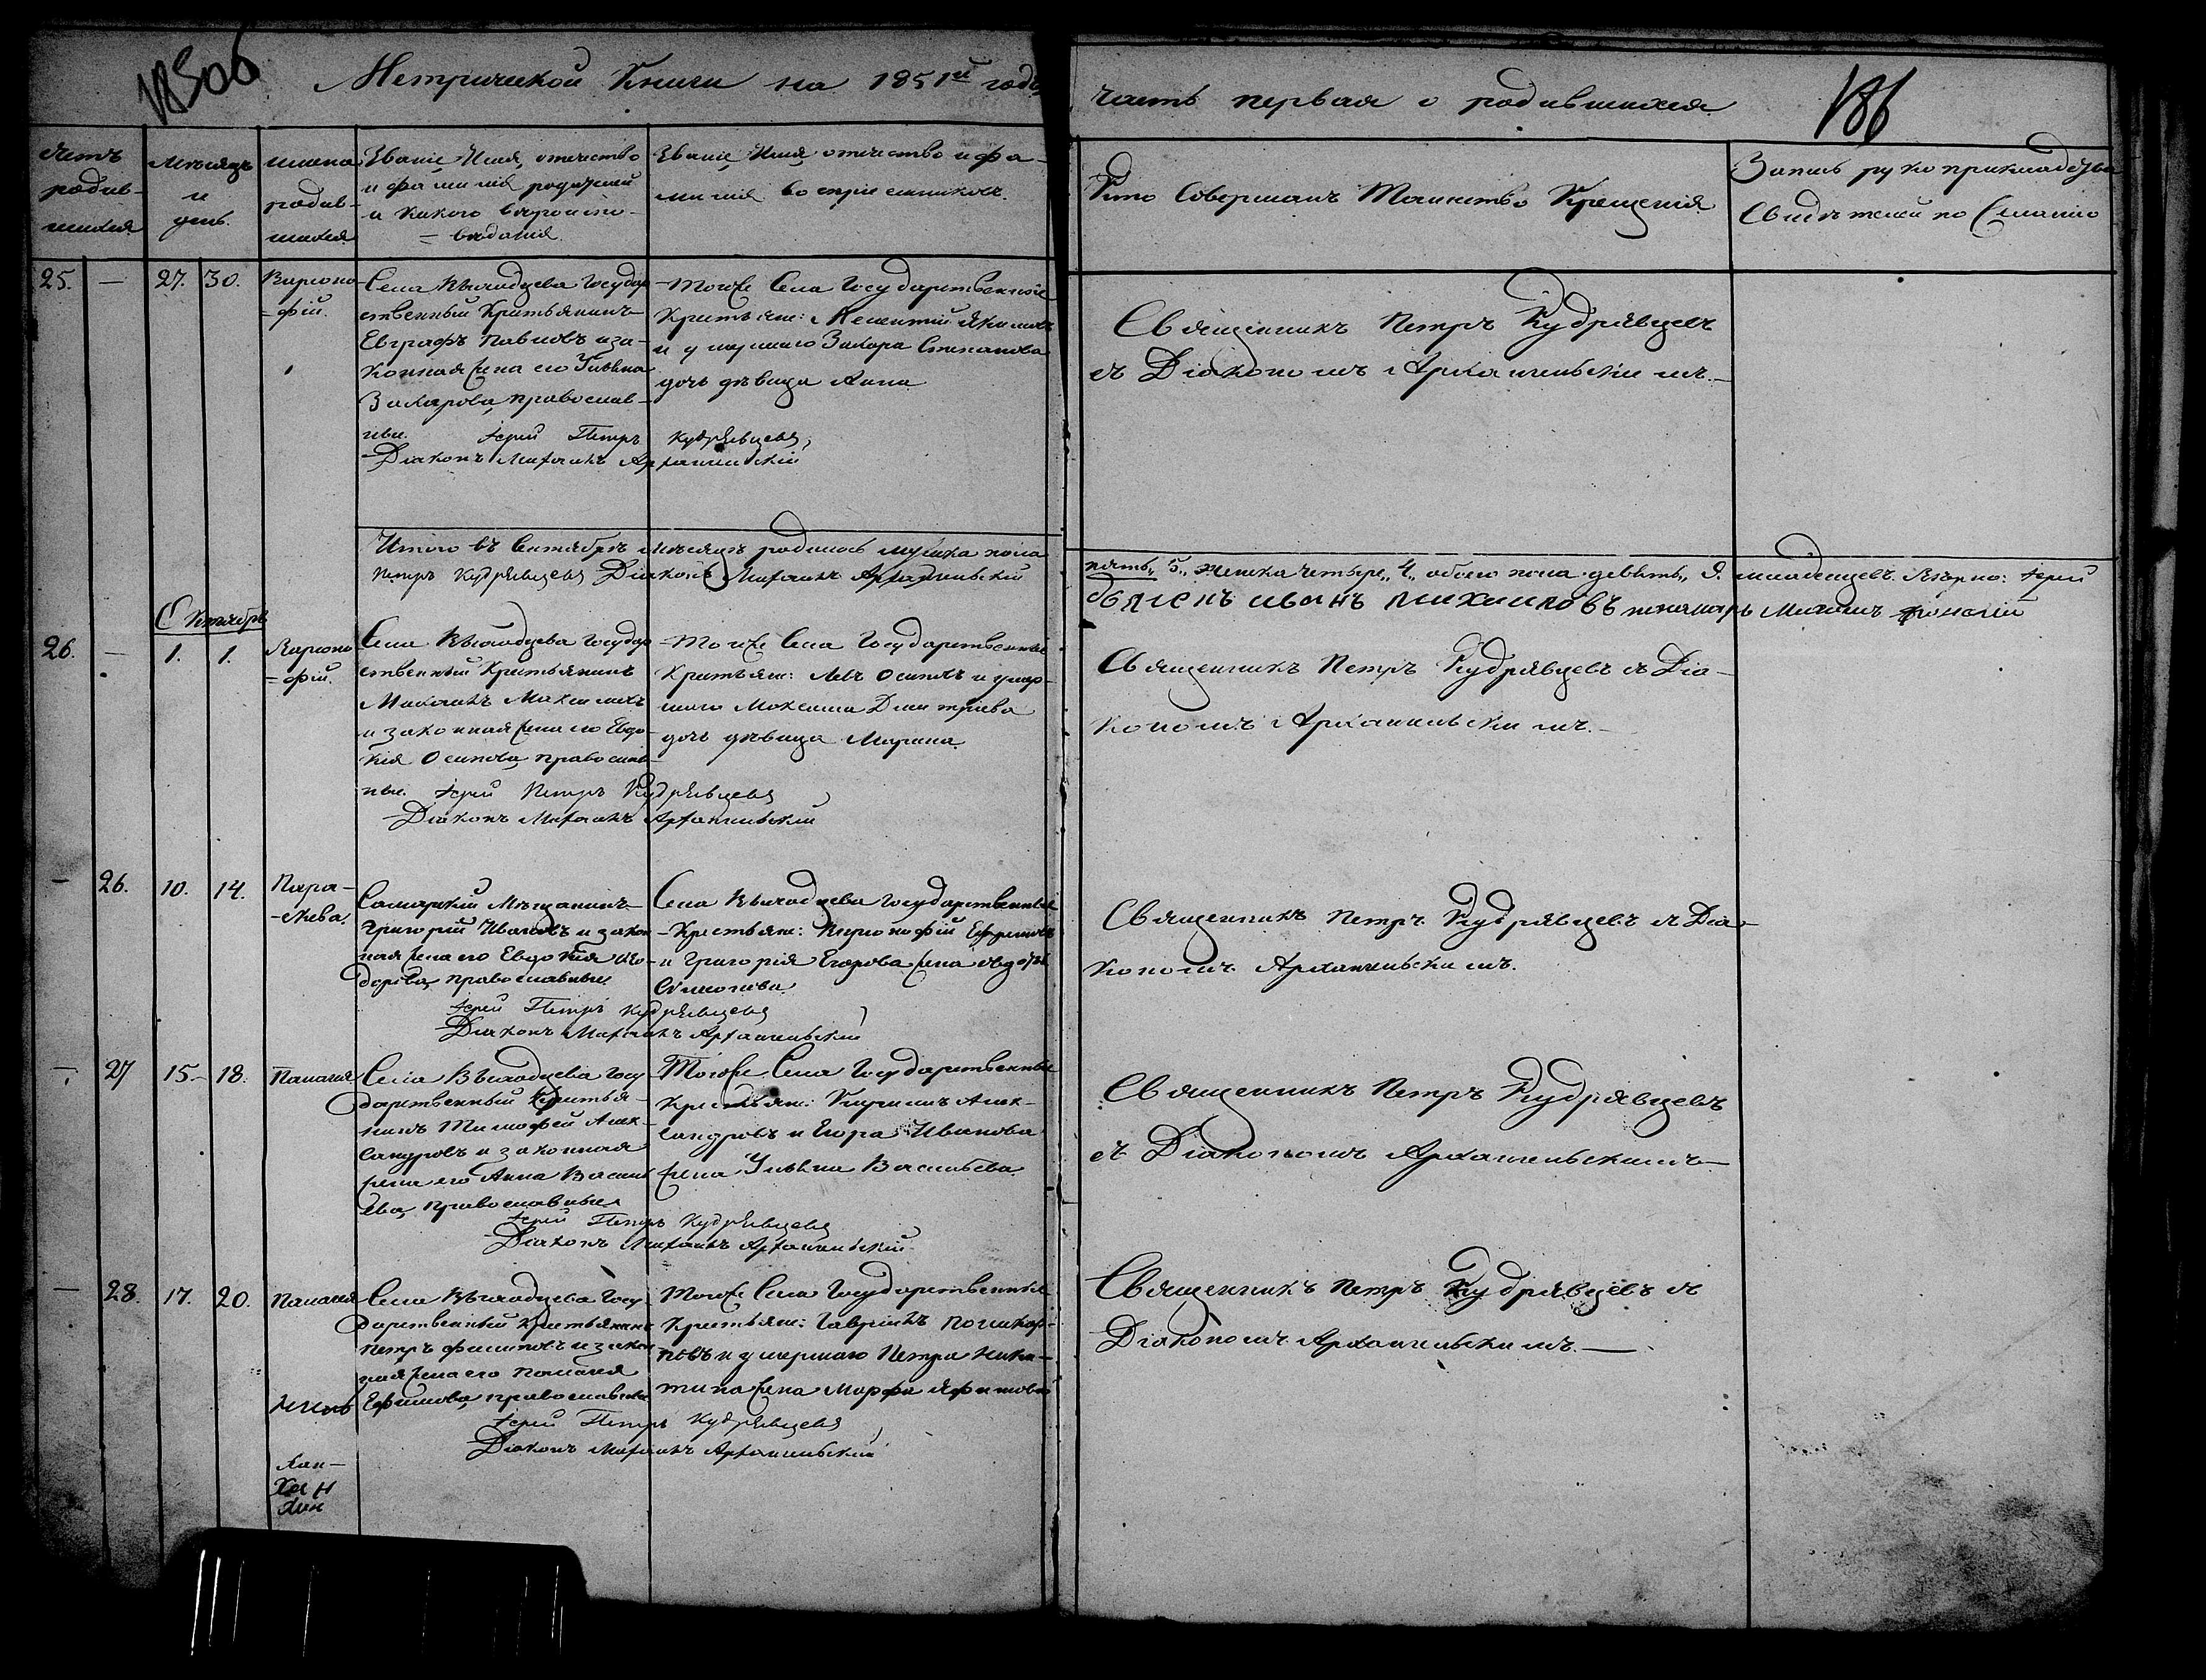 506
Метрической Книги на 1851й годъ
часть первая о родившихся
186
Счетъ родив-
шихся
Мѣсяцъ
и
день.
имена
родив-
шихся
Званіе, Имя, отечество
и фамилія родителей
и какого вѣроиспо-
=вѣданія.
Званіе, Имя, отчество и фа-
милія воспріемниковъ.
Кто Совершалъ Таинство Крещенія.
Запись рукоприкладства
Свидѣтелей по Желанію
25. — 27. 30. Вароно
=фій.
Села Выходцева Государ
ственный Крестьянинъ
Евграфъ Павловъ и за-
конная жена его Ульяна
Захарова, православ-
ные. Іерей Петръ Кудрявцевъ,
Діаконъ Михаилъ Архангельскій
Тогоже Села Государственные
Крестьяне: Мелентій Якимовъ
и умершаго Захара Степанова
дочь дѣвица Анна
Священникъ Петръ Кудрявцевъ
съ Діакономъ Архангельскимъ.—
Итого въ Сентябрѣ мѣсяцѣ родилось мужска пола
пять, 5, женска четыре, 4, обоего пола девять, 9. младенцевъ. Вѣрно: Іерей
Петръ Кудрявцевъ Діаконъ Михаилъ Архангельскій
Иванъ Михаиловъ пономарь Михаилъ
Октябрь
26. — 1. 1. Вароно
=фій.
Села Выходцева Государ
ственный Крестьянинъ
Михаилъ Максимовъ
и законная жена его Евдо-
кія Осипова, православ-
ные. Іерей Петръ Кудрявцевъ
Діаконъ Михаилъ Архангельскій
Тогоже Села Государственные
Крестьяне: Левъ Осиповъ и умер-
шаго Максима Дмитріева
дочь дѣвица Марина.
Священникъ Петръ Кудрявцевъ съ Діа-
кономъ Архангельскимъ.—
— 26. 10. 14. Пара-
-скева.
Самарскій Мѣщанинъ
Григорій Ивановъ и закон
ная жена его Евдокія Ѳео-
дорова, православные.
Іерей Петръ Кудрявцевъ
Діаконъ Михаилъ Архангельскій
Села Выходцева государственные
Крестьяне: Варонофій Ефремовъ
и Григорія Егорова жена
Симонова.
Священникъ Петръ Кудрявцевъ съ Діа-
кономъ Архангельскимъ.
— 27 15. 18. Палагея
Села Выходцева Госу
дарственный Крестья-
нинъ Тимофей Алек-
сандровъ и законная
жена его Анна Василь
ева, православные
Іерей Петръ Кудрявцевъ
Діаконъ Михаилъ Архангельскій
Тогоже Села Государственные
Крестьяне: Кирилъ Алек-
сандровъ и Егора Иванова
жена Ульяна Васильева.
Священникъ Петръ Кудрявцевъ
съ Діакономъ Архангельскимъ—
— 28. 17. 20. Палагея
Села Выходцева Госу-
дарственный Крестьянинъ
Петръ Филиповъ и закон
ная жена его Палагея
Ефимова, православные
Іерей Петръ Кудрявцевъ
Діаконъ Михаилъ Архангельскій
Тогоже Села Государственные
Крестьяне: Гавріилъ Поликар-
повъ и умершаго Петра Ники-
тина жена Марфа
Священникъ Петръ Кудрявцевъ съ
Діакономъ Архангельскимъ.—